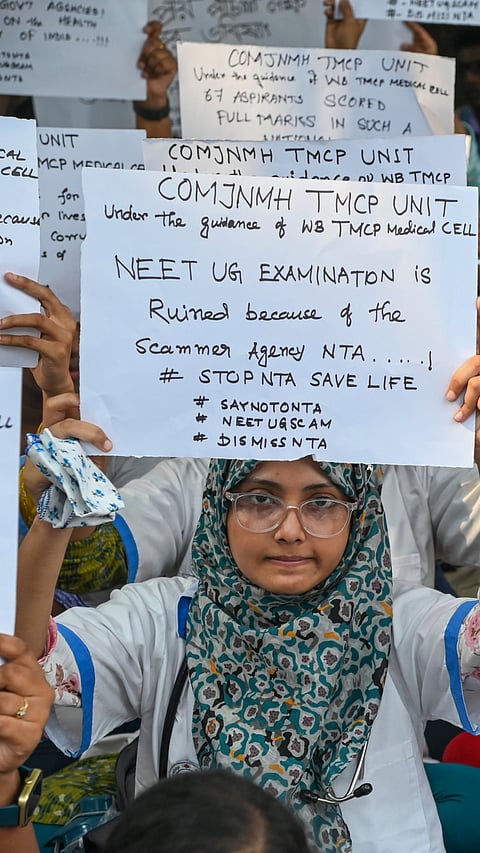 GOVT AGENCIES!
ON THE HEALTH
OF INDIA....!!!
# NEETUGSCAM
# DISMISSNTA
COMJNMH TMCP UNIT
Under the guidance of WB TMCP MEDICAL CELL
67 ASPIRANTS SCORED
FULL MARKS IN SUCH A
UNIT
TMCP MEDICAL CELL
for
lives
COMJNMH TMCP UNIT
Under the guidance of WB TMCP
CELL
because
COMJNMH TMCP UNIT
Under the guidance of WB TMCP Medical CELL
NEET UG EXAMINATON IS
Ruined because of the
Scammer Agency NTA.....!
# STOPNTA SAVE LIFE
# SAYNOTONTA
# NEETUGSCAM
# DISMISSNTA